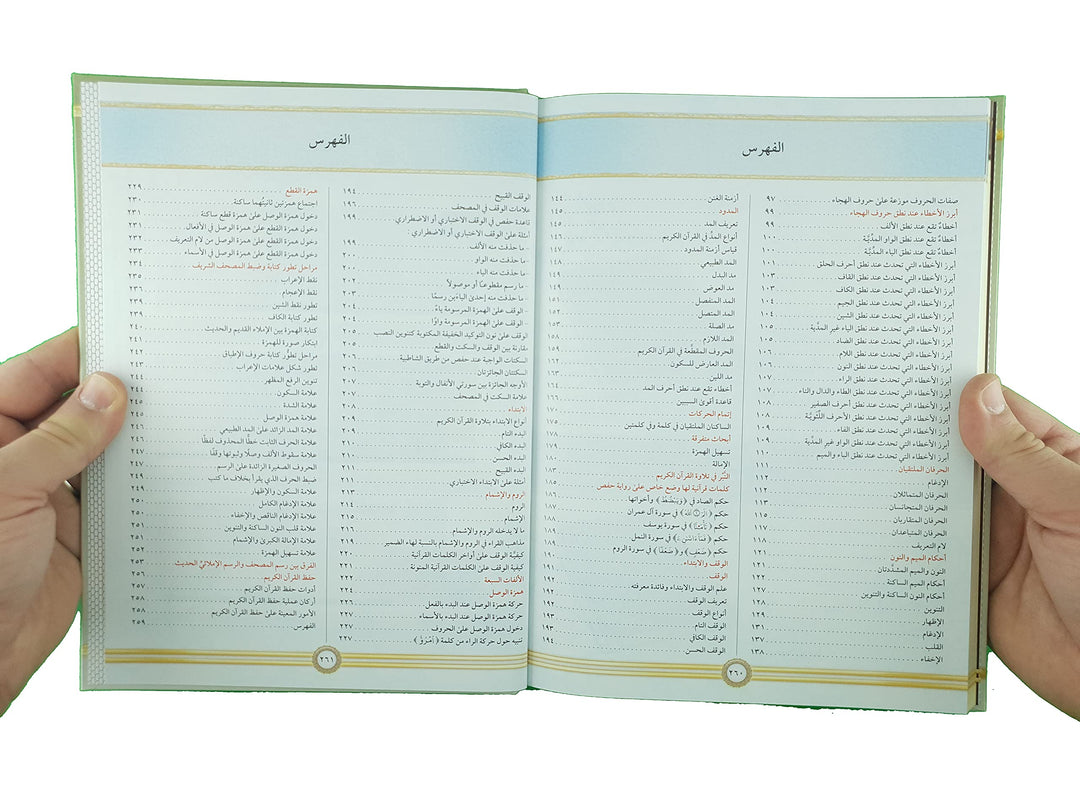 الفهرس
صفات الحروف موزعة على حروف الهجاء ٩٧
أبرز الأخطاء عند نطق حروف الهجاء ٩٩
أخطاءٌ تقع عند نطق الألف ٩٩
أخطاءٌ تقع عند نطق الواو المدِّيَّة ١٠٠
أخطاءٌ تقع عند نطق الياء المدِّيَّة ١٠٠
أبرز الأخطاء التي تحدث عند نطق أحرف الحلق ١٠١
أبرز الأخطاء التي تحدث عند نطق القاف ١٠٣
أبرز الأخطاء التي تحدث عند نطق الكاف ١٠٣
أبرز الأخطاء التي تحدث عند نطق الجيم ١٠٤
أبرز الأخطاء التي تحدث عند نطق الشين ١٠٤
أبرز الأخطاء التي تحدث عند نطق الياء غير المدِّية ١٠٥
أبرز الأخطاء التي تحدث عند نطق الضاد ١٠٥
أبرز الأخطاء التي تحدث عند نطق اللام ١٠٦
أبرز الأخطاء التي تحدث عند نطق النون ١٠٦
أبرز الأخطاء التي تحدث عند نطق الراء ١٠٧
أبرز الأخطاء التي تحدث عند نطق الطاء والدال والتاء ١٠٧
أبرز الأخطاء التي تحدث عند نطق أحرف الصفير ١٠٨
أبرز الأخطاء التي تحدث عند نطق الأحرف اللِّثَويَّة ١٠٨
أبرز الأخطاء التي تحدث عند نطق الواو غير المدِّية ١٠٩
أبرز الأخطاء التي تحدث عند نطق الباء والميم ١٠٩
الحرفان الملتقيان ١١١
الإدغام ١١٢
الحرفان المتماثلان ١١٢
الحرفان المتجانسان ١١٥
الحرفان المتقاربان ١١٧
الحرفان المتباعدان ١١٨
لام التعريف ١١٨
أحكام الميم والنون ١٢١
النون والميم المشدَّدتان ١٢١
أحكام الميم الساكنة ١٢٢
أحكام النون الساكنة والتنوين ١٢٧
التنوين ١٢٨
الإظهار ١٢٩
الإدغام ١٣١
القلب ١٣٧
الإخفاء ١٣٨
أزمنة الغنن ١٤٤
المدود ١٤٥
تعريف المد
أنواع المدِّ في القرآن الكريم ١٤٥
قياس أزمنة المدود ١٤٧
المد الطبيعي
مد البدل
مد العوض ١٤٩
المد المنفصل ١٥١
المد المتصل
مد الصلة
المد اللازم
الحروف المقطَّعة في القرآن الكريم
المد العارض للسكون
مد اللين
أخطاء تقع عند نطق أحرف المد ١٦٤
قاعدة أقوى السببين ١٦٦
إتمام الحركات
الساكنان الملتقيان في كلمة وفي كلمتين ١٧٥
أبحاث متفرقة
تسهيل الهمزة
الإمالة
النَّبر في تلاوة القرآن الكريم ١٨٣
كلمات قرآنية لها وضع خاص على رواية حفص ١٨٥
حكم الصاد في ﴿وَيَبْصُۜطُ﴾ وأخواتها ١٨٦
حكم في سورة آل عمران ١٨٧
حكم في سورة يوسف ١٨٨
حكم في سورة النمل ١٨٩
حكم ﴿ضَعْفٍ﴾ و ﴿ضَعْفًا﴾ في سورة الروم ١٩٠
الوقف والابتداء ١٩١
الوقف ١٩١
علم الوقف والابتداء وفائدة معرفته ١٩٢
تعريف الوقف ١٩٢
أنواع الوقف ١٩٢
الوقف التام ١٩٣
الوقف الكافي ١٩٣
الوقف الحسن ١٩٤
٢٦٠
الفهرس
الوقف القبيح ١٩٤
علامات الوقف في المصحف ١٩٦
قاعدة حفص في الوقف الاختباري أو الاضطراري ١٩٩
أمثلة على الوقف الاختباري أو الاضطراري :
- ما حذفت منه الألف ١٩٩
- ما حذفت منه الواو ٢٠٠
- ما حذفت منه الياء ٢٠٠
- ما رسم مقطوعًا أو موصولًا ٢٠٢
- ما حذفت منه إحدى الياءين رسمًا ٢٠٣
- الوقف على الهمزة المرسومة ياءً ٢٠٤
- الوقف على الهمزة المرسومة واوًا ٢٠٤
الوقف على نون التوكيد الخفيفة المكتوبة كتنوين النصب ٢٠٥
مقارنة بين الوقف والسكت والقطع ٢٠٥
السكتات الواجبة عند حفص من طريق الشاطبية ٢٠٦
السكتتان الجائزتان
الأوجه الجائزة بين سورتي الأنفال والتوبة ٢٠٧
علامة السكت في المصحف ٢٠٧
الابتداء ٢٠٨
أنواع الابتداء بتلاوة القرآن الكريم ٢٠٩
البدء التام ٢٠٩
البدء الكافي ٢١٠
البدء الحسن ٢١١
البدء القبيح ٢١١
أمثلة على الابتداء الاختباري ٢١١
الروم والإشمام ٢١٣
الروم ٢١٤
الإشمام ٢١٥
ما لا يدخله الروم والإشمام ٢١٦
مذاهب القراء في الروم والإشمام بالنسبة لهاء الضمير ٢١٩
كيفيَّة الوقف على أواخر الكلمات القرآنية ٢٢٠
كيفية الوقف على الكلمات القرآنية المنونة ٢٢١
الألفات السبعة ٢٢٢
همزة الوصل ٢٢٤
حركة همزة الوصل عند البدء بالفعل ٢٢٦
حركة همزة الوصل عند البدء بالأسماء
دخول همزة الوصل على الحروف
تنبيه حول حركة الراء من كلمة ﴿امْرُؤٌا﴾ ٢٢٧
همزة القطع ٢٢٩
اجتماع همزتين ثانيتُهما ساكنة ٢٣٠
دخول همزة الوصل على همزة قطع ساكنة ٢٣١
دخول همزة القطع على همزة الوصل في الأفعال ٢٣١
دخول همزة القطع على همزة الوصل من لام التعريف ٢٣٢
دخول همزة القطع على همزة الوصل في الأسماء ٢٣٣
مراحل تطور كتابة وضبط المصحف الشريف ٢٣٤
نقط الإعراب ٢٣٥
نقط الإعجام ٢٣٦
تطور نقط الشين ٢٣٩
تطور كتابة الكاف ٢٣٩
كتابة الهمزة بين الإملاء القديم والحديث ٢٤٠
ابتكار صورة للهمزة ٢٤١
مراحل تطوُّر كتابة حروف الإطباق ٢٤٢
تطور شكل علامات الإعراب ٢٤٣
تنوين الرفع المظهر ٢٤٤
علامة السكون ٢٤٤
علامة الشدة ٢٤٥
علامة همزة الوصل ٢٤٥
علامة المد الزائد على المد الطبيعي
علامة الحرف الثابت خطًّا المحذوف لفظًا ٢٤٦
علامة سقوط الألف وصلًا وثبوتها وقفًا
الحروف الصغيرة الزائدة على الرسم ٢٤٧
ضبط الحرف الذي يقرأ بخلاف ما كتب ٢٤٩
علامة السكون والإظهار
علامة الإدغام الكامل ٢٥٠
علامة الإدغام الناقص والإخفاء ٢٥٠
علامة قلب النون الساكنة والتنوين ٢٥١
علامة الإمالة الكبرى والإشمام ٢٥١
علامة تسهيل الهمزة ٢٥٢
الفرق بين رسم المصحف والرسم الإملائيِّ الحديث ٢٥٣
حفظ القرآن الكريم ٢٥٦
أدوات حفظ القرآن الكريم ٢٥٧
أركان عملية حفظ القرآن الكريم ٢٥٨
الأمور المعينة على حفظ القرآن الكريم ٢٥٨
الفهرس ٢٥٩
٢٦١